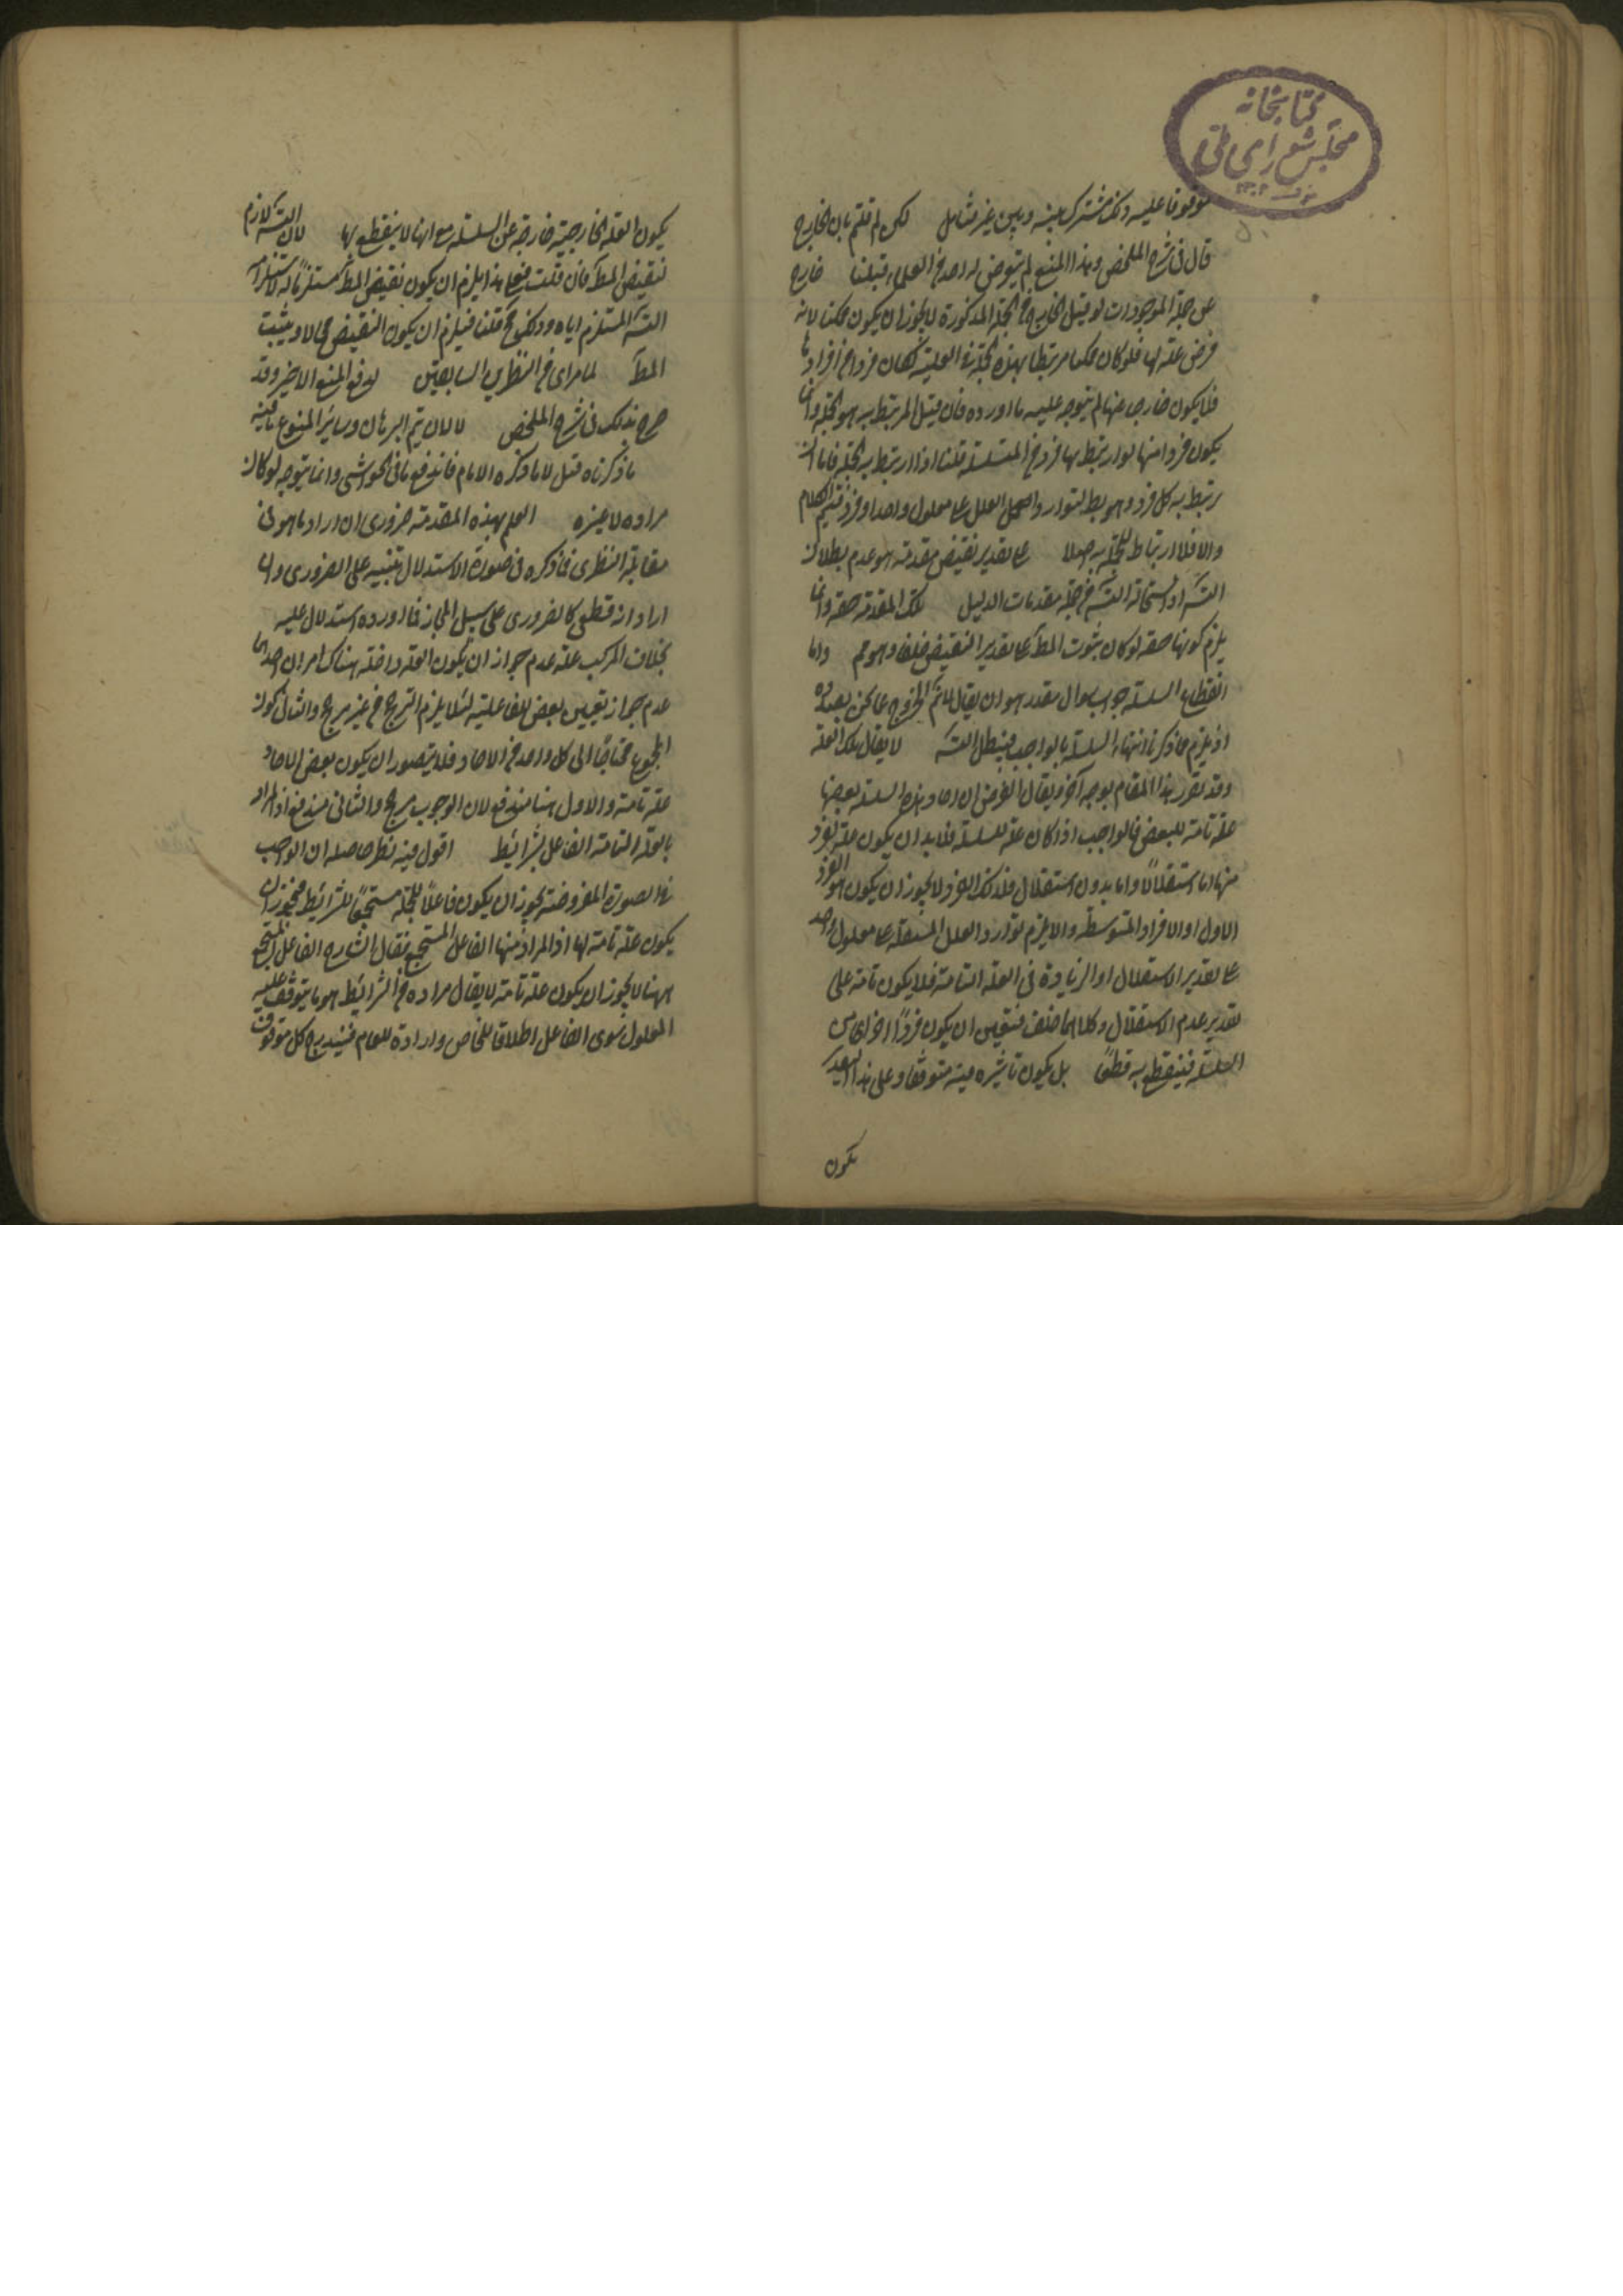 كتابخانه
مجلس شورای ملی
موقوفا عليه وذلك مشترك بينه وبين غير متامل لكن لم قلتم بان الخارج
قال فى شرح الملخص وهذا المنع لم يتعرض له احد من العلماء قبلنا خارج
عن جملة الموجودات لو قيل الخارج من الجملة المذكورة لا يجوز ان يكون ممكنا لانه
فرض علة لها فلو كان ممكنا مرتبطا بهذه الجملة بالعلية لكان فردا من افرادها
فلا يكون خارجا عنها لم يتوجه عليه ما اورده فان قيل المرتبط به هو الجملة وانما
يكون فردا منها لو ارتبط بها فرد من المتسلسلة قلنا اذا ارتبط به الجملة فاما ان
يرتبط به كل فرد وهو بط لتوارد العلل على معلول واحد او فرد فيتم الكلام
والا فلا ارتباط للجملة به اصلا على تقدير نقيض مقدمة هو عدم بطلان
التسلسل اذ استحالة التسلسل من جملة مقدمات الدليل تلك المقدمة حقه وانما
يلزم كونها حقه لو كان ثبوت المط على تقدير النقيض خلفا وهو مم واما
انقطاع السلسلة جواب سؤال مقدر هو ان يقال لما تم الخروج عما نحن بصدده
اذ يلزم مما ذكرنا انتهاء السلسلة بالواجب فيبطل التسلسل لا يقال تلك العلة
وقد تقرر هذا المقام بوجه آخر ويقال الفرض ان احاد هذه السلسلة بعضها
علة تامة للبعض فالواجب اذا كان علة للسلسلة فلا بد ان يكون علة لفرد
منها اما استقلالا واما بدون استقلال فذلك الفرد لا يجوز ان يكون هو الفرد
الاول او الافراد المتوسطة والا يلزم توارد العلل المستقلة على معلول واحد
على تقدير الاستقلال او الزيادة فى العلة التامة فلا يكون تامة على
تقدير عدم الاستقلال وكلاهما خلف فتعين ان يكون فردا اخر من
السلسلة فينقطع به قطعا بل يكون تاثيره فيه متوقفا وعلى هذا التقدير
يكون
يكون العلة الخارجية خارجة عن السلسلة مع انها لا ينقطع بها لان التسلسل لازم
لنقيض المط فان قلت فعلى هذا يلزم ان يكون نقيض المط مستلزما له لاستلزامه
التسلسل المستلزم اياه وذلك مح قلنا فيلزم ان يكون النقيض محالا ويثبت
المط لما مر اى من النظرين السابقين لدفع المنع الاخير وقد
صرح بذلك فى شرح الملخص لا لان يتم البرهان وسائر المنوع باقية
ما ذكرناه قبل لا ما ذكره الامام فاندفع ما فى الحواشى وانما يتوجه لو كان
مراده لا غيره العلم بهذه المقدمة ضرورى ان اراد ما هو فى
مقابلة النظرى فما ذكره فى صورة الاستدلال تنبيه على الضرورى وان
اراد انه قطعى كالضرورى على سبيل المجاز فما اورده استدلال عليه
بخلاف المركب علة عدم جواز ان يكون العلة داخلة هناك امران احدهما
عدم جواز تعيين بعض للفاعلية لئلا يلزم الترجيح من غير مرجح والثانى كون
المجموع محتاجا الى كل واحد من الاحاد فلا يتصور ان يكون بعض الاحاد
علة تامة والاول هنا مندفع لان الوجوب مرجح والثانى مندفع اذ المراد
بالعلة التامة الفاعل بشرائط اقول فيه نظر حاصله ان الواجب
فى الصورة المفروضة يجوز ان يكون فاعلا للجملة مستجمعا للشرائط فيجوز ان
يكون علة تامة لها اذ المراد منها الفاعل المستجمع فقال الشارح الفاعل المستجمع
ههنا لا يجوز ان يكون علة تامة لا يقال مراده من الشرائط هو ما يتوقف عليه
المعلول سوى الفاعل اطلاقا للخاص وارادة للعام فيندرج كل موقوف